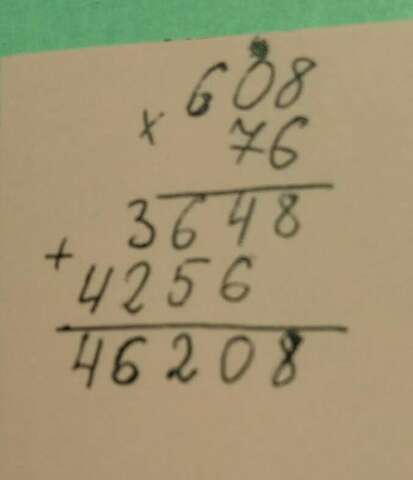 608
× 76
3648
+ 4256
46208